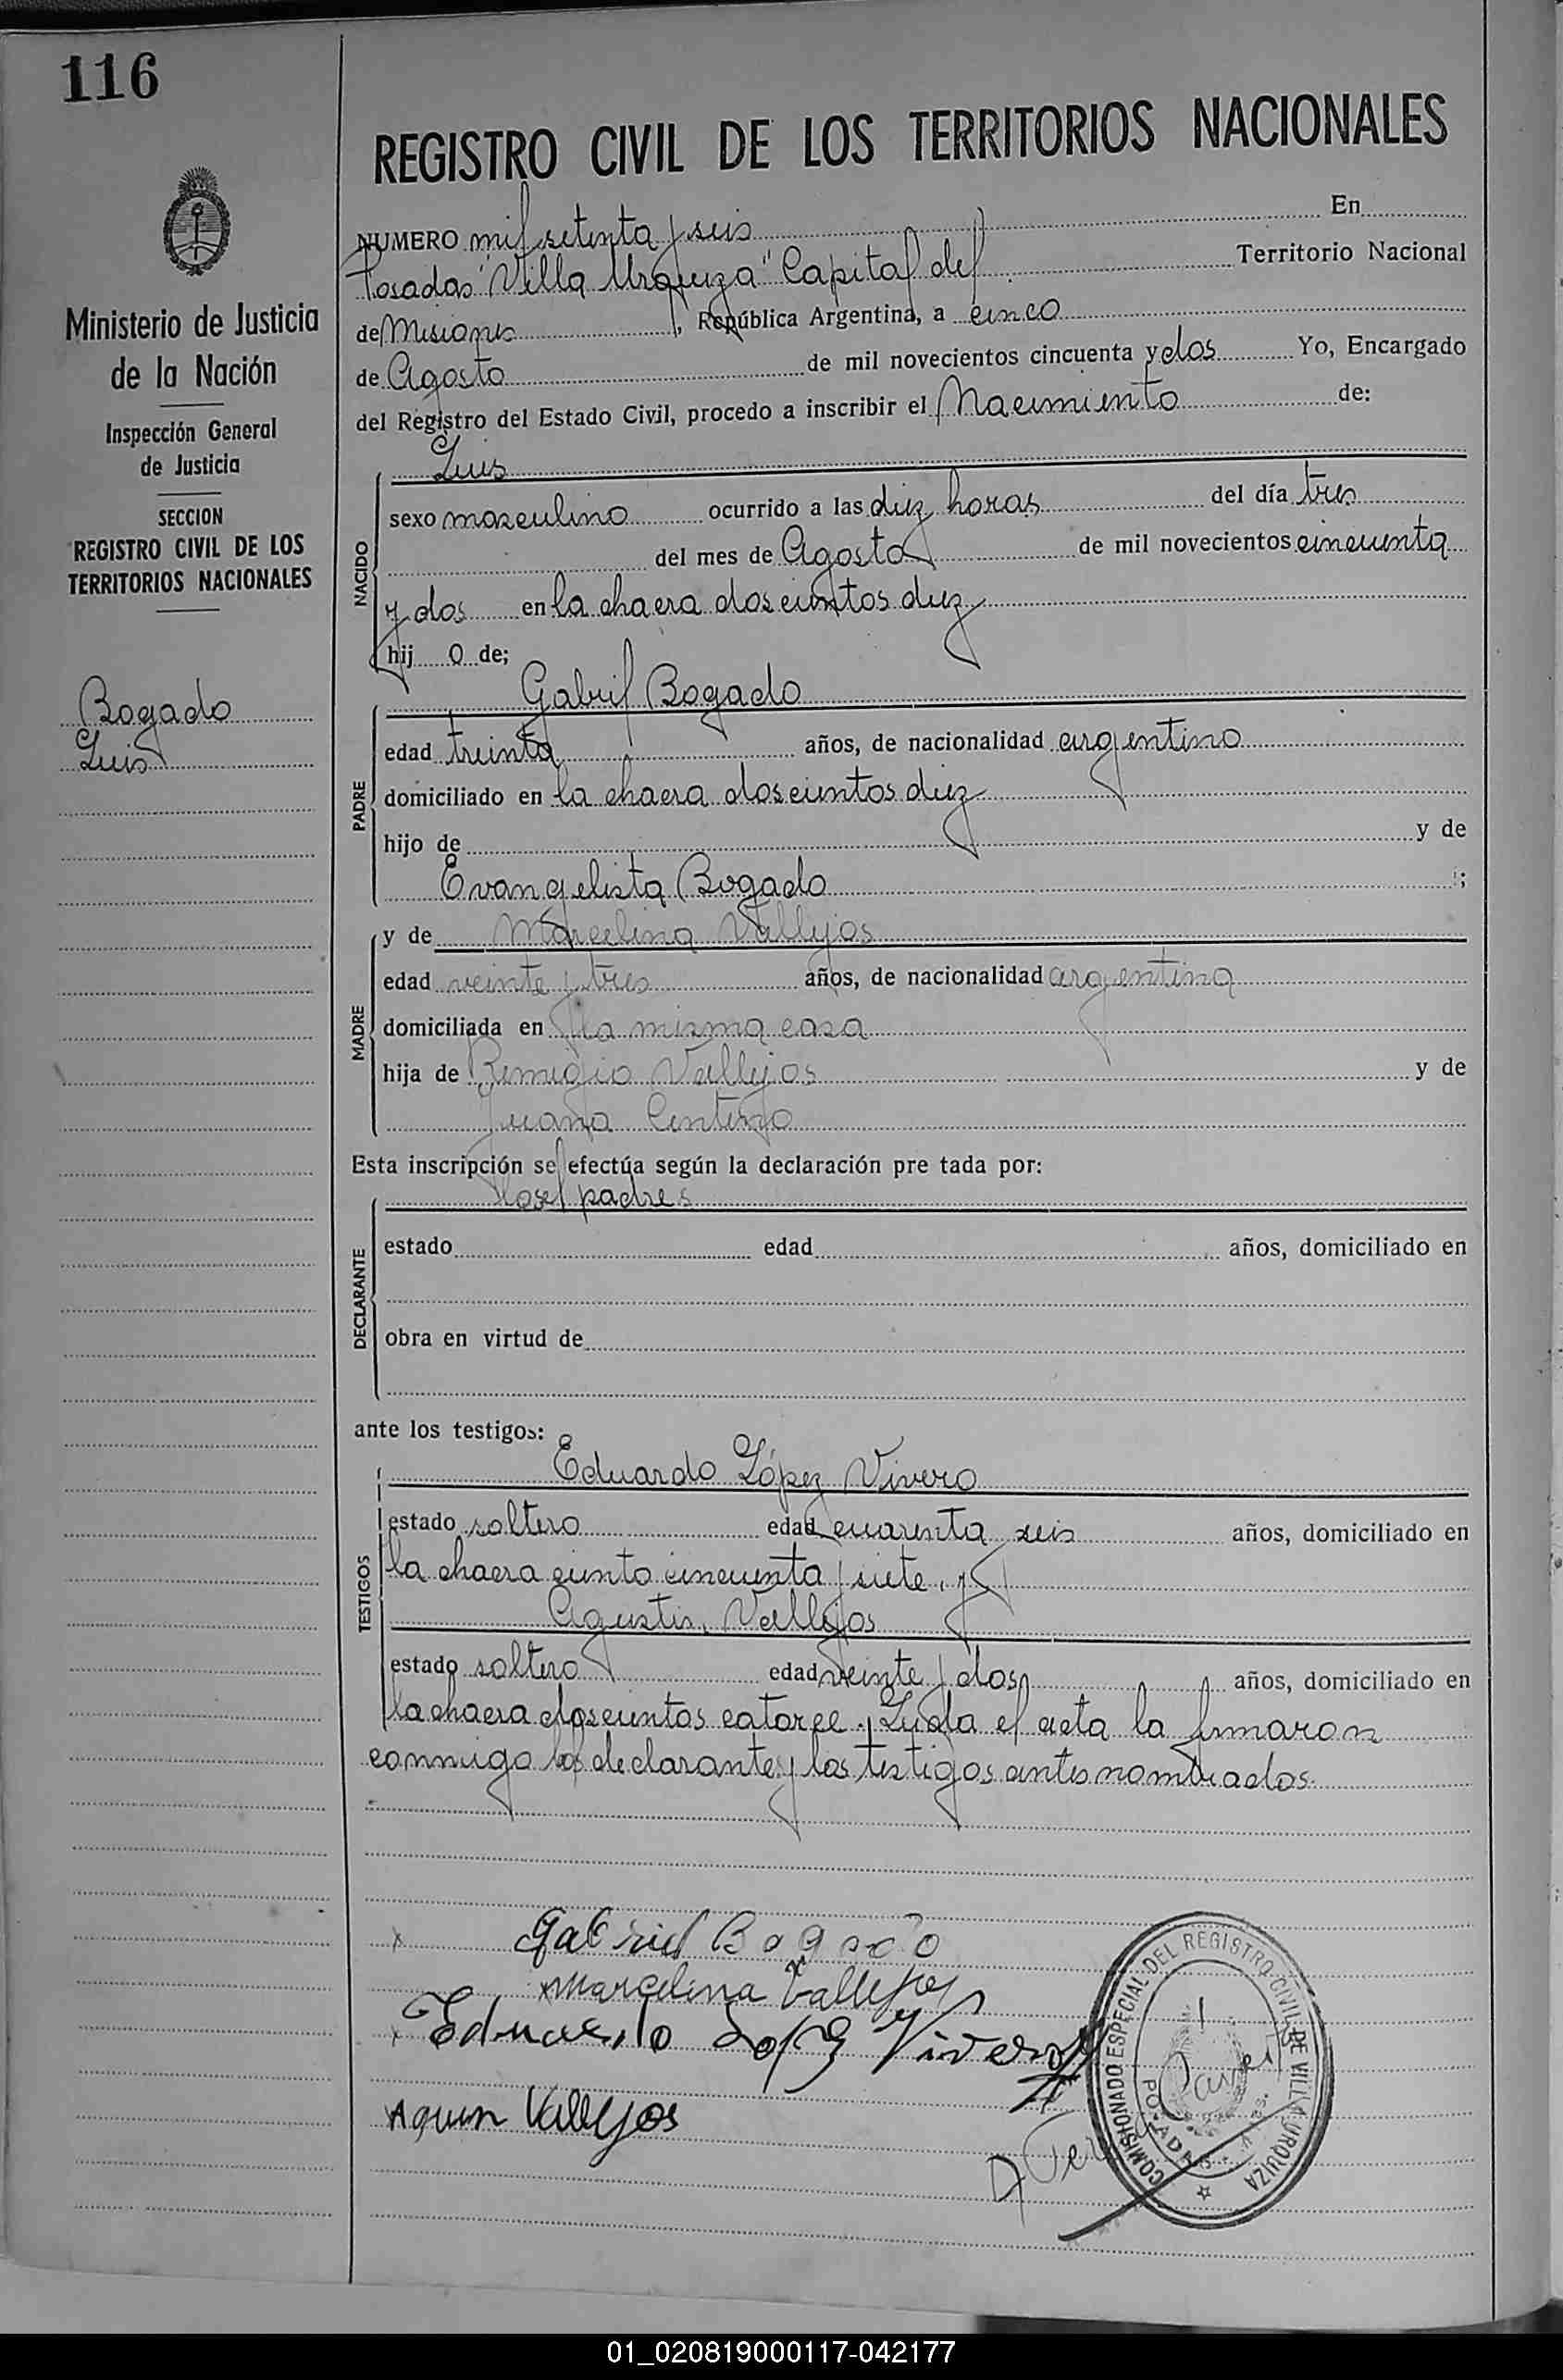 116
REGISTRO CIVIL DE LOS TERRITORIOS NACIONALES
Ministerio de Justicia
de la Nación
Inspección General
de Justicia
SECCION
REGISTRO CIVIL DE LOS
TERRITORIOS NACIONALES
Bogado
Luis
NUMERO mil setenta y seis En
Posadas "Villa Urquiza" Capital del Territorio Nacional
de Misiones, República Argentina, a cinco
de Agosto de mil novecientos cincuenta y dos Yo, Encargado
del Registro del Estado Civil, procedo a inscribir el Nacimiento de:
Luis
NACIDO
sexo masculino ocurrido a las diez horas del día tres
del mes de Agosto de mil novecientos cincuenta
y dos en la chacra doscientos diez
hij o de;
Gabriel Bogado
PADRE
edad treinta años, de nacionalidad argentino
domiciliado en la chacra doscientos diez
hijo de y de
Evangelista Bogado ;
MADRE
y de Marcelina Vallejos
edad veinte y tres años, de nacionalidad argentina
domiciliada en la misma casa
hija de Remigio Vallejos y de
Juana Centeno
Esta inscripción se efectúa según la declaración pre tada por:
los padres
DECLARANTE
estado edad años, domiciliado en
obra en virtud de
ante los testigos:
Eduardo López Vivero
TESTIGOS
estado soltero edad cuarenta seis años, domiciliado en
la chacra ciento cincuenta y siete, y
Agustin Vallejos
estado soltero edad veinte y dos años, domiciliado en
la chacra doscientos catorce. Leida el acta la firmaron
conmigo los declarantes y los testigos antes nombrados.
x Gabriel Bogado
x Marcelina Vallejos
x Eduardo Lopez Vivero
Vallejos
COMISIONADO ESPECIAL DEL REGISTRO CIVIL DE VILLA URQUIZA
POSADAS
01_020819000117-042177